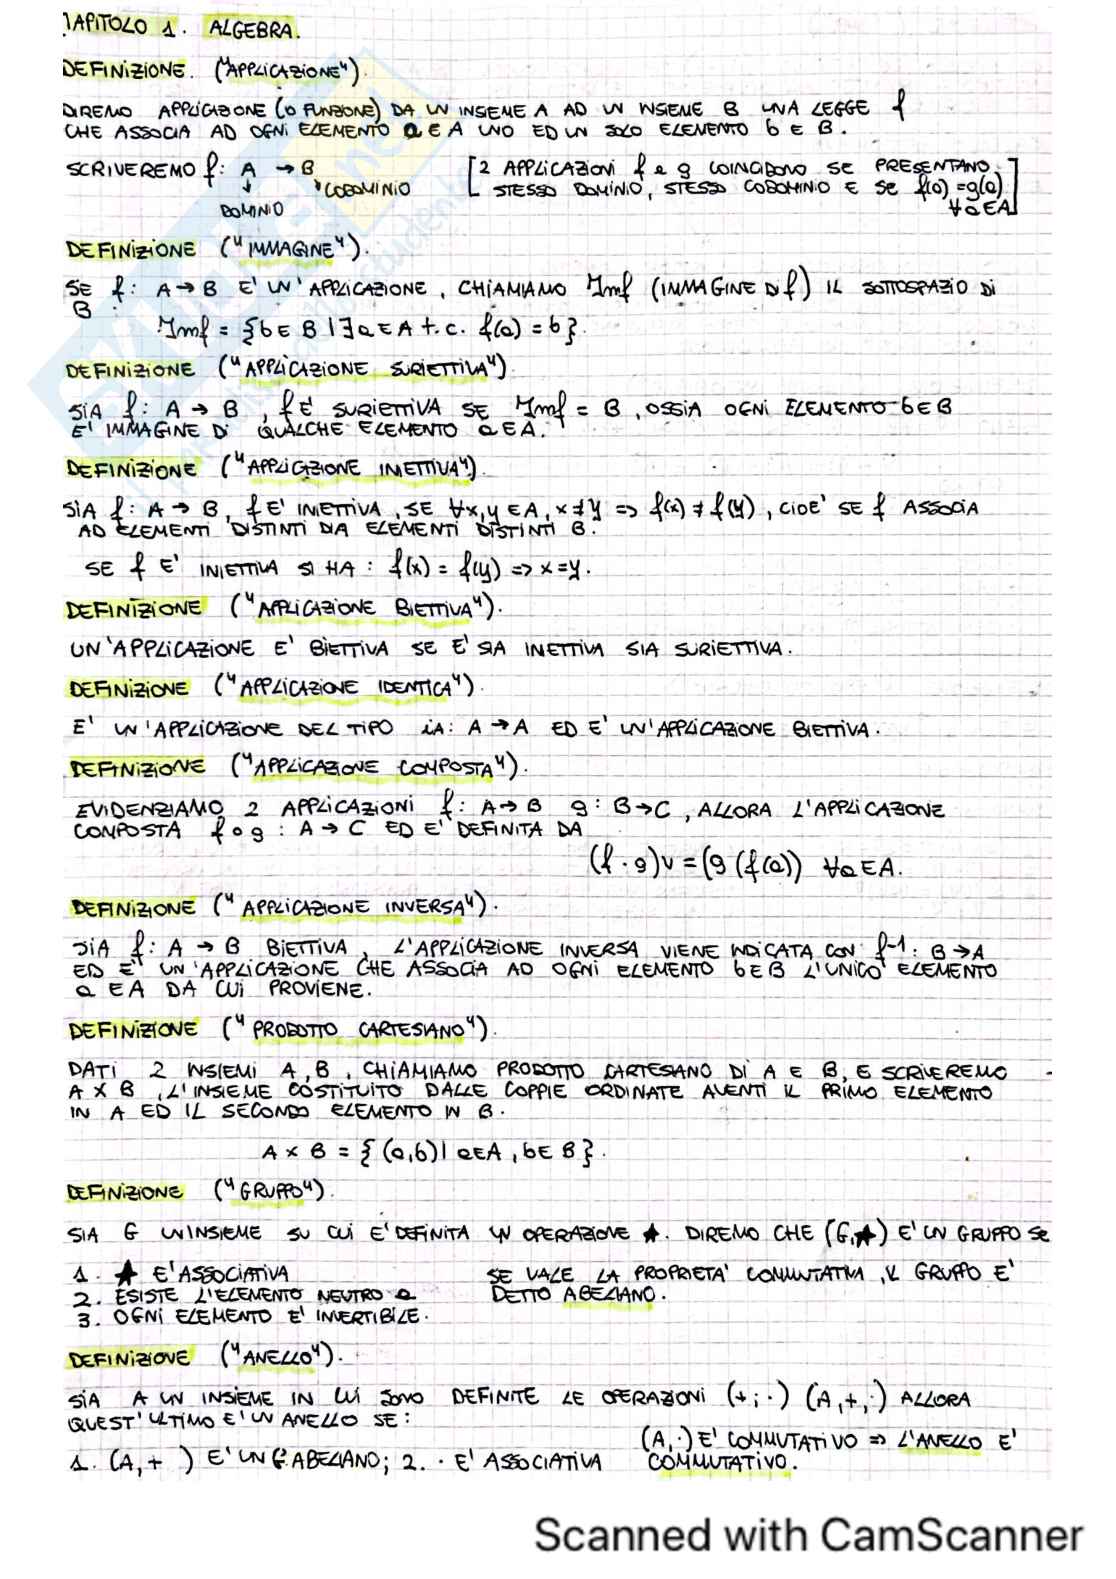 CAPITOLO 1. ALGEBRA.
DEFINIZIONE. ("APPLICAZIONE").
DIREMO APPLICAZIONE (O FUNZIONE) DA UN INSIEME A AD UN INSIEME B UNA LEGGE f
CHE ASSOCIA AD OGNI ELEMENTO a ∈ A UNO ED UN SOLO ELEMENTO b ∈ B.
SCRIVEREMO f: A → B [2 APPLICAZIONI f e g COINCIDONO SE PRESENTANO
↓ ↘CODOMINIO STESSO DOMINIO, STESSO CODOMINIO E SE f(a) = g(a)
DOMINIO ∀a∈A]
DEFINIZIONE ("IMMAGINE").
SE f: A → B E' UN'APPLICAZIONE, CHIAMIAMO Imf (IMMAGINE DI f) IL SOTTOSPAZIO DI
B :
Imf = {b ∈ B | ∃ a ∈ A t.c. f(a) = b}.
DEFINIZIONE ("APPLICAZIONE SURIETTIVA")
SIA f: A → B, f E' SURIETTIVA SE Imf = B, OSSIA OGNI ELEMENTO b∈B
E' IMMAGINE DI QUALCHE ELEMENTO a∈A.
DEFINIZIONE ("APPLICAZIONE INIETTIVA").
SIA f: A → B, f E' INIETTIVA, SE ∀x,y ∈ A, x ≠ y => f(x) ≠ f(y), CIOE' SE f ASSOCIA
AD ELEMENTI DISTINTI DIA ELEMENTI DISTINTI B.
SE f E' INIETTIVA SI HA: f(x) = f(y) => x=y.
DEFINIZIONE ("APPLICAZIONE BIETTIVA").
UN'APPLICAZIONE E' BIETTIVA SE E' SIA INIETTIVA SIA SURIETTIVA.
DEFINIZIONE ("APPLICAZIONE IDENTICA").
E' UN'APPLICAZIONE DEL TIPO iA: A → A ED E' UN'APPLICAZIONE BIETTIVA.
DEFINIZIONE ("APPLICAZIONE COMPOSTA").
EVIDENZIAMO 2 APPLICAZIONI f: A→B g: B→C, ALLORA L'APPLICAZIONE
COMPOSTA f∘g: A → C ED E' DEFINITA DA
(f · g)v = (g (f(a)) ∀a∈A.
DEFINIZIONE ("APPLICAZIONE INVERSA").
SIA f: A → B BIETTIVA, L'APPLICAZIONE INVERSA VIENE INDICATA CON f-1: B→A
ED E' UN'APPLICAZIONE CHE ASSOCIA AD OGNI ELEMENTO b∈B L'UNICO ELEMENTO
a ∈ A DA CUI PROVIENE.
DEFINIZIONE ("PRODOTTO CARTESIANO").
DATI 2 INSIEMI A, B, CHIAMIAMO PRODOTTO CARTESIANO DI A E B, E SCRIVEREMO
A X B, L'INSIEME COSTITUITO DALLE COPPIE ORDINATE AVENTI IL PRIMO ELEMENTO
IN A ED IL SECONDO ELEMENTO IN B.
A x B = {(a,b) | a∈A, b∈B}.
DEFINIZIONE ("GRUPPO").
SIA G UN INSIEME SU CUI E' DEFINITA UN OPERAZIONE ★. DIREMO CHE (G,★) E' UN GRUPPO SE
1. ★ E' ASSOCIATIVA SE VALE LA PROPRIETA' COMMUTATIVA, IL GRUPPO E'
2. ESISTE L'ELEMENTO NEUTRO e DETTO ABELIANO.
3. OGNI ELEMENTO E' INVERTIBILE.
DEFINIZIONE ("ANELLO").
SIA A UN INSIEME IN CUI SONO DEFINITE LE OPERAZIONI (+; ·) (A,+,·) ALLORA
QUEST'ULTIMO E' UN ANELLO SE:
(A,·) E' COMMUTATIVO => L'ANELLO E'
1. (A,+ ) E' UN G.ABELIANO; 2. · E' ASSOCIATIVA COMMUTATIVO.
Scanned with CamScanner